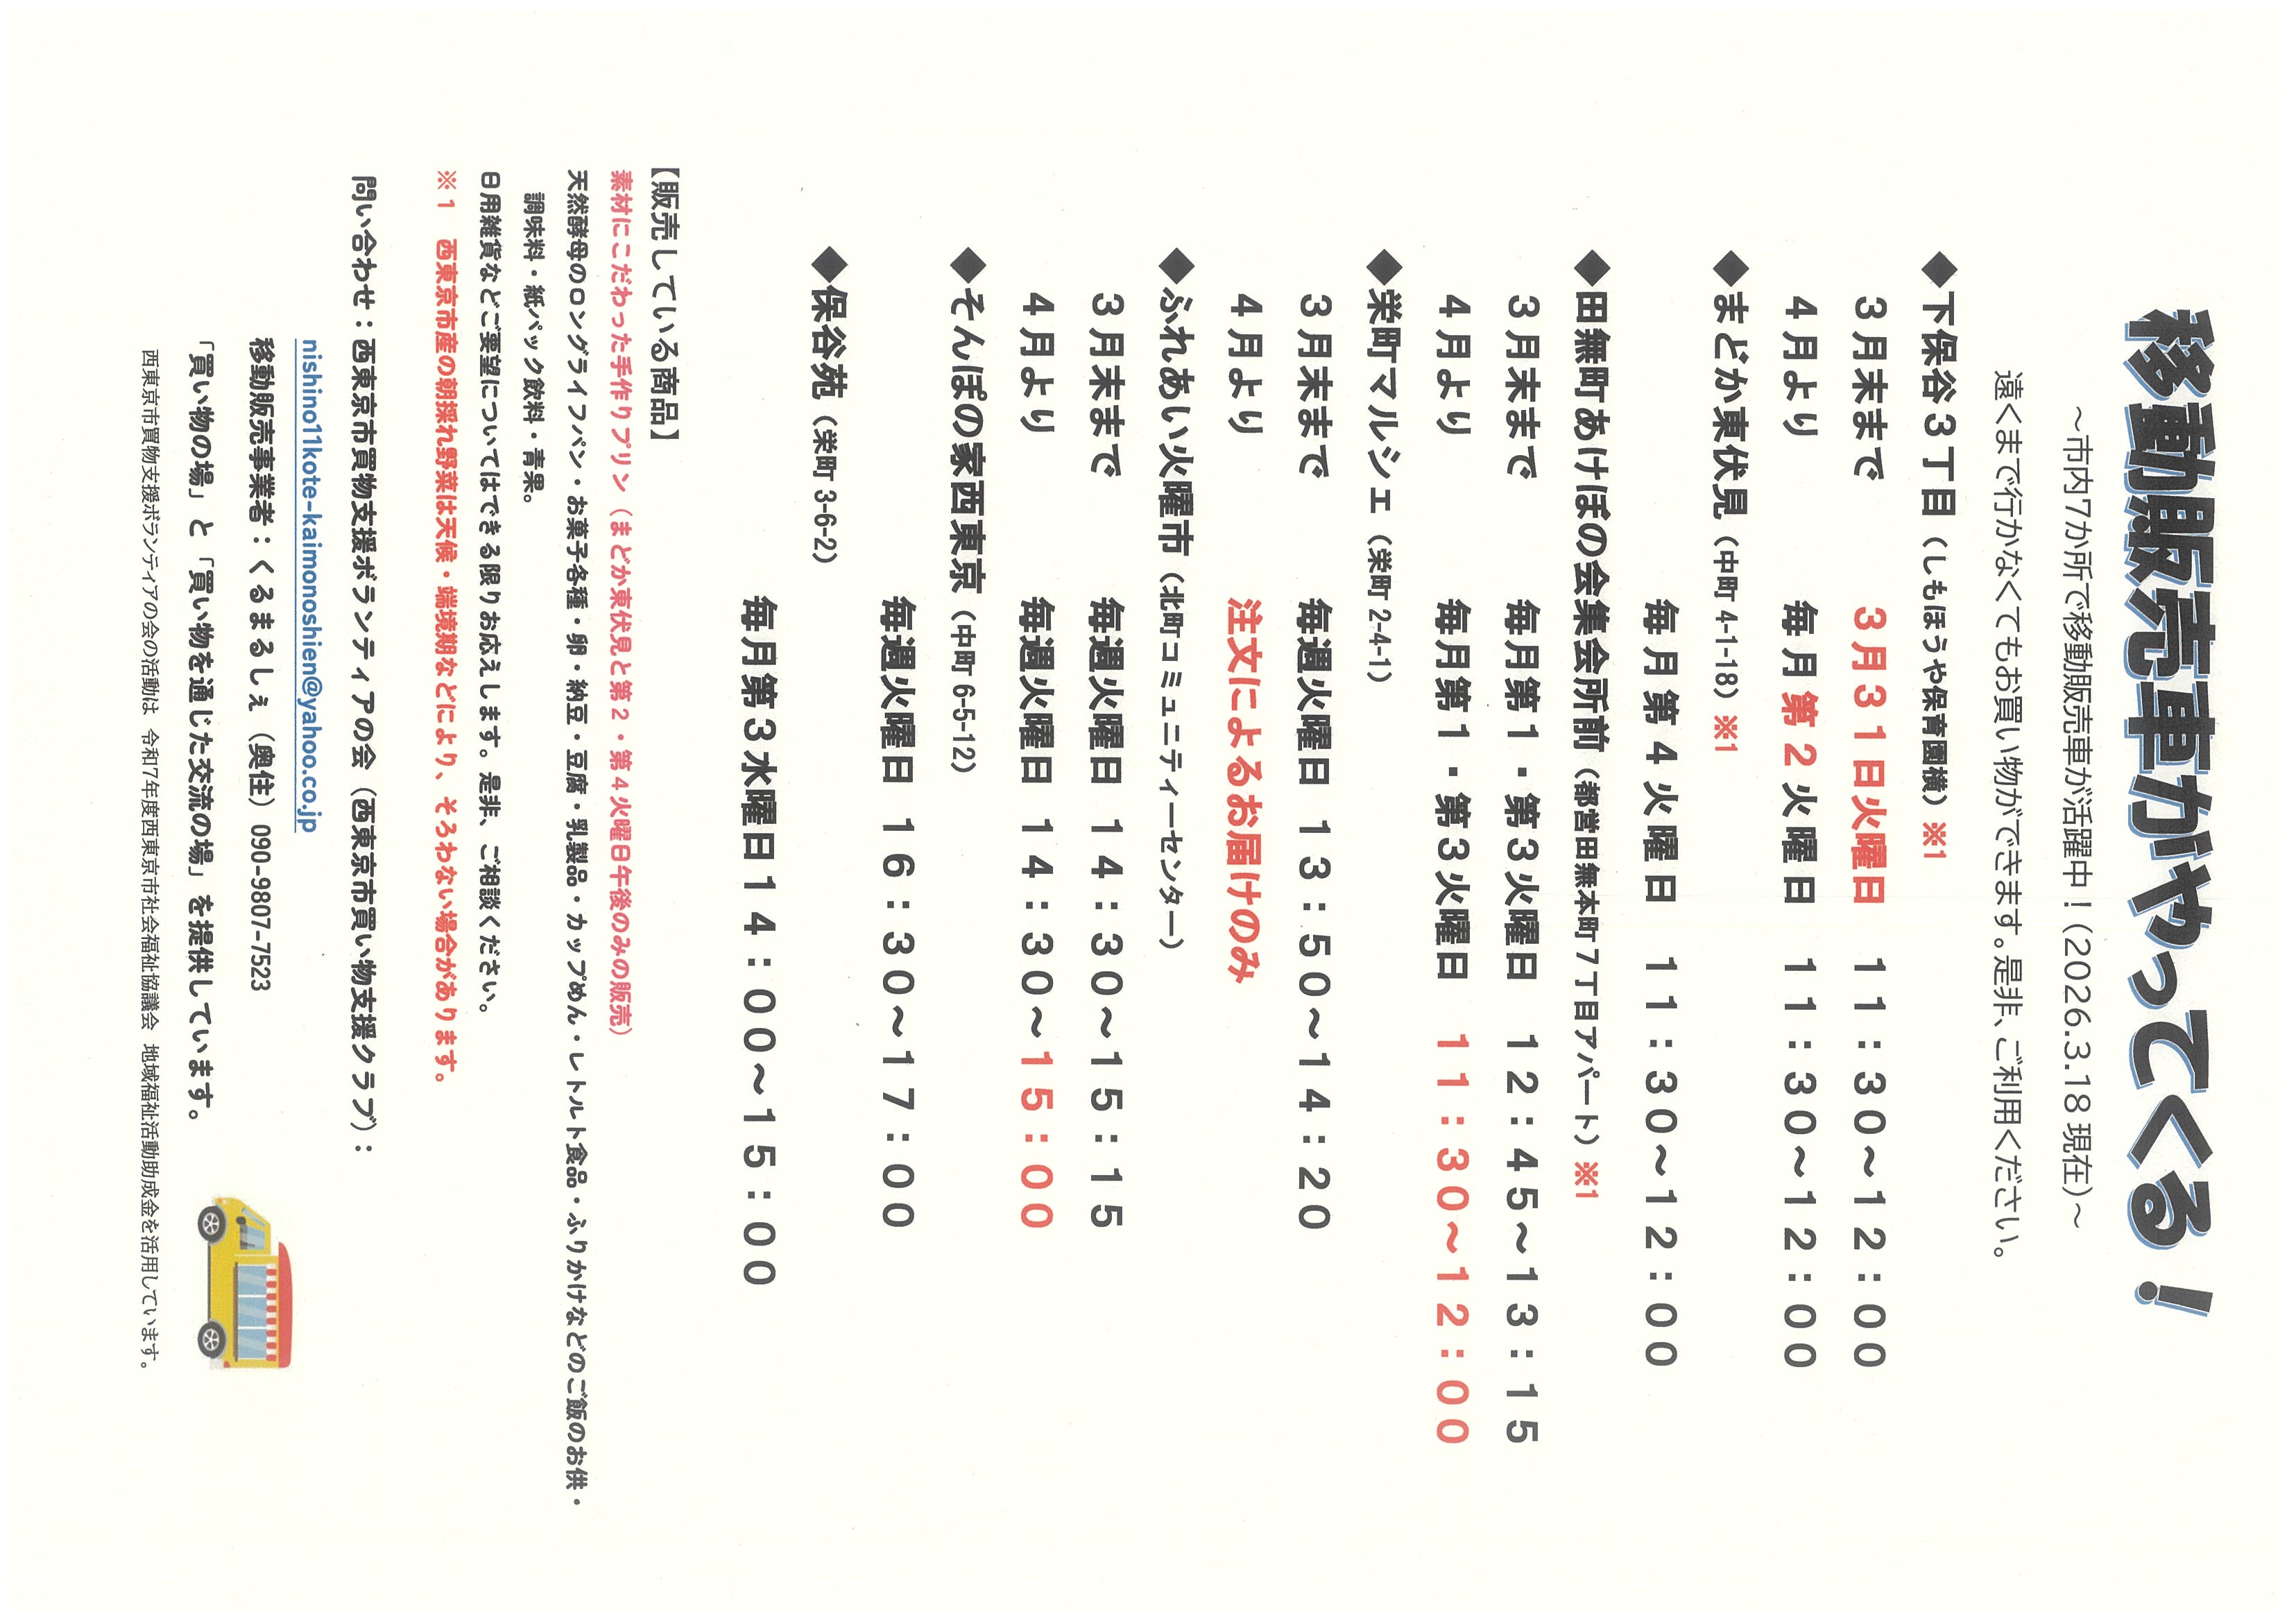 移動販売車がやってくる！
～市内7か所で移動販売車が活躍中！（2026.3.18 現在）～
遠くまで行かなくてもお買い物ができます。是非、ご利用ください。
◆下保谷３丁目（しもほうや保育園横）※1
３月末まで　３月３１日火曜日　１１：３０～１２：００
４月より　毎月第２火曜日　１１：３０～１２：００
◆まどか東伏見（中町 4-1-18）※1
毎月第４火曜日　１１：３０～１２：００
◆田無町あけぼの会集会所前（都営田無本町７丁目アパート）※1
３月末まで　毎月第１・第３火曜日　１２：４５～１３：１５
４月より　毎月第１・第３火曜日　１１：３０～１２：００
◆栄町マルシェ（栄町 2-4-1）
３月末まで　毎週火曜日　１３：５０～１４：２０
４月より　注文によるお届けのみ
◆ふれあい火曜市（北町コミュニティーセンター）
３月末まで　毎週火曜日　１４：３０～１５：１５
４月より　毎週火曜日　１４：３０～１５：００
◆そんぽの家西東京（中町 6-5-12）
毎週火曜日　１６：３０～１７：００
◆保谷苑（栄町 3-6-2）
毎月第３水曜日１４：００～１５：００
【販売している商品】
素材にこだわった手作りプリン（まどか東伏見と第２・第４火曜日午後のみの販売）
天然酵母のロングライフパン・お菓子各種・卵・納豆・豆腐・乳製品・カップめん・レトルト食品・ふりかけなどのご飯のお供・
調味料・紙パック飲料・青果。
日用雑貨などご要望についてはできる限りお応えします。是非、ご相談ください。
※１　西東京市産の朝採れ野菜は天候・端境期などにより、そろわない場合があります。
問い合わせ：西東京市買物支援ボランティアの会（西東京市買い物支援クラブ）：
nishino11kote-kaimonoshien@yahoo.co.jp
移動販売事業者：くるまるしぇ（奥住）090-9807-7523
「買い物の場」と「買い物を通じた交流の場」を提供しています。
西東京市買物支援ボランティアの会の活動は　令和7年度西東京市社会福祉協議会　地域福祉活動助成金を活用しています。